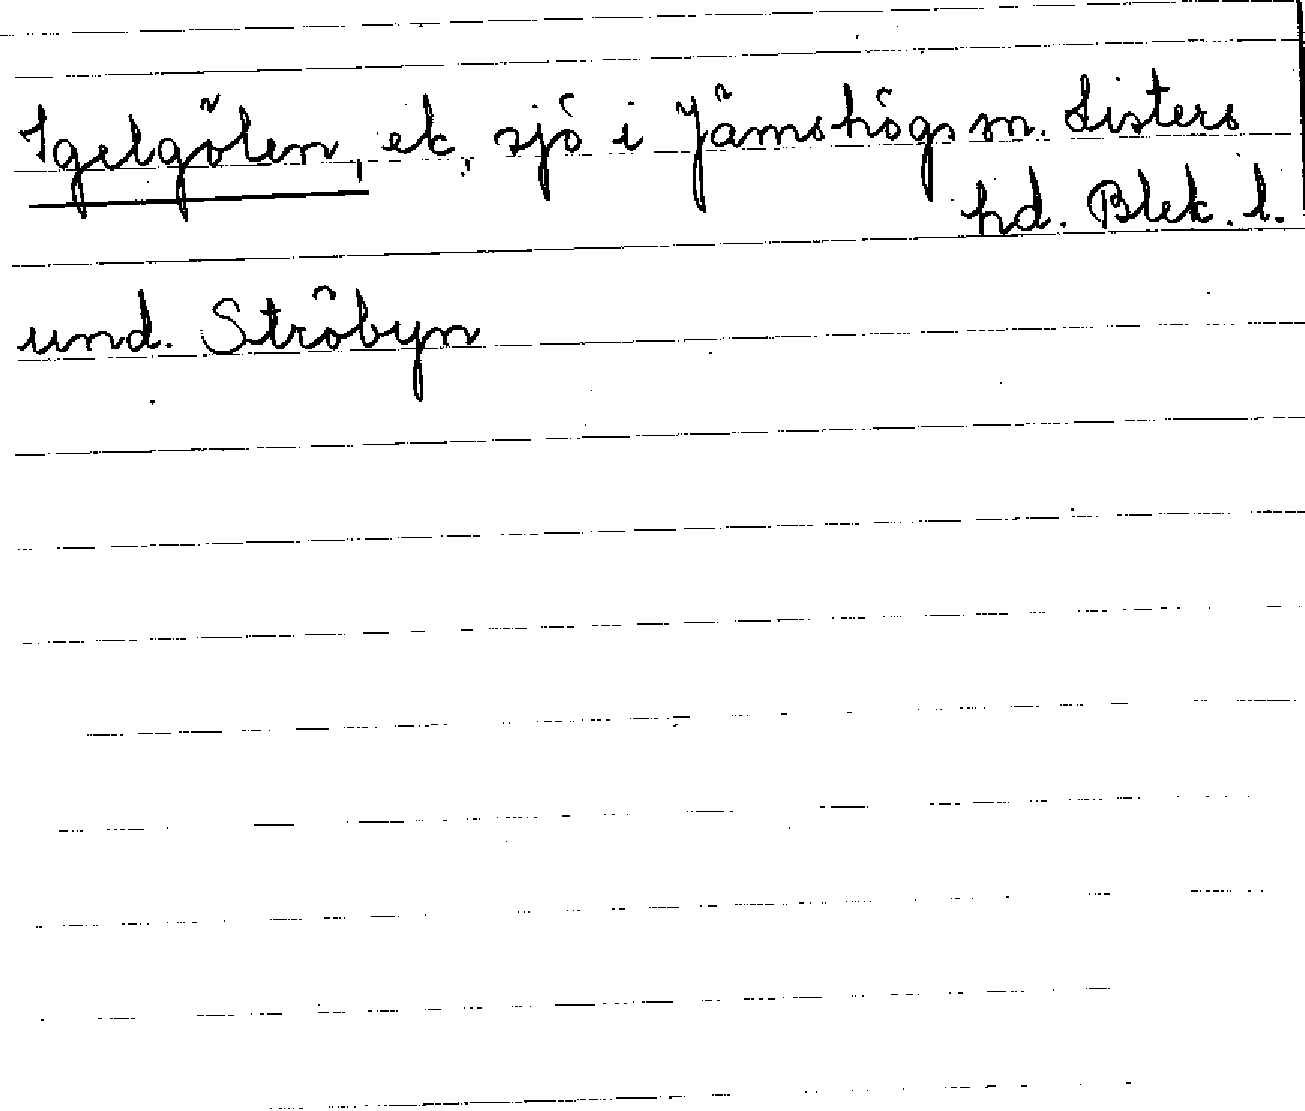 Igelgölen, ek. sjö i Jämshögs sn. Listers
hd. Blek. l.
und. Ströbyn